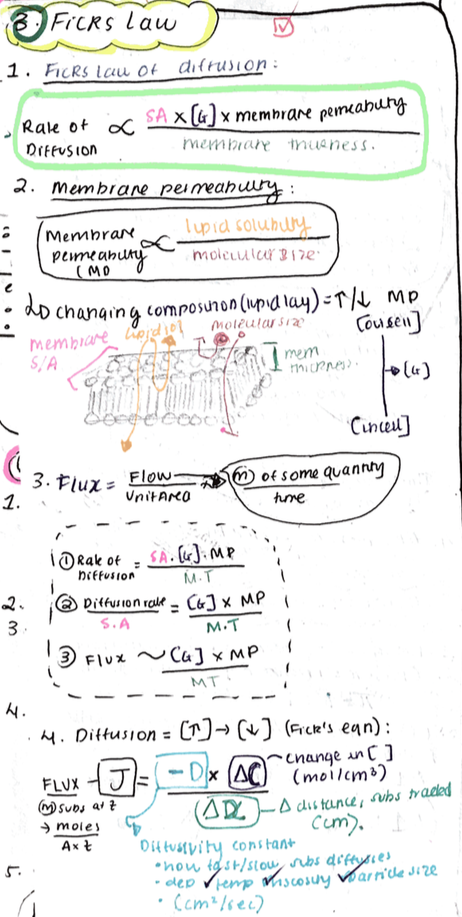 3. FICKS LAW
1. FICKS law of diffusion:
Rate of Diffusion ∝ SA x [G] x membrane permeability
membrane thickness.
2. Membrane permeability:
Membrane permeability (MP) ∝ lipid solubility
molecular size.
↳D changing composition (lipid lay) = ↑/↓ MP
[outcell]
membrane S/A
lipid sol
molecular size
mem thickness
[G]
[incell]
3. Flux = Flow → (m) of some quantity
Unit Area
time
1.
① Rate of Diffusion = SA. [G]. MP
M.T
2.
② Diffusion rate = [G] x MP
S.A
M.T
3.
③ Flux ~ [G] x MP
MT
4.
4. Diffusion = [↑] → [↓] (Fick's eqn):
FLUX - J = -D x ΔC
change in [ ] (mol/cm³)
ΔX
Δ distance, subs traveled (cm).
(m) subs at t
→ moles
A x t
Diffusivity constant
• how fast/slow subs diffuses
• dep ✓temp ✓viscosity ✓particle size
• (cm²/sec)
5.